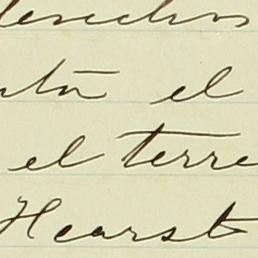 derechos
el
el terre
Hearst